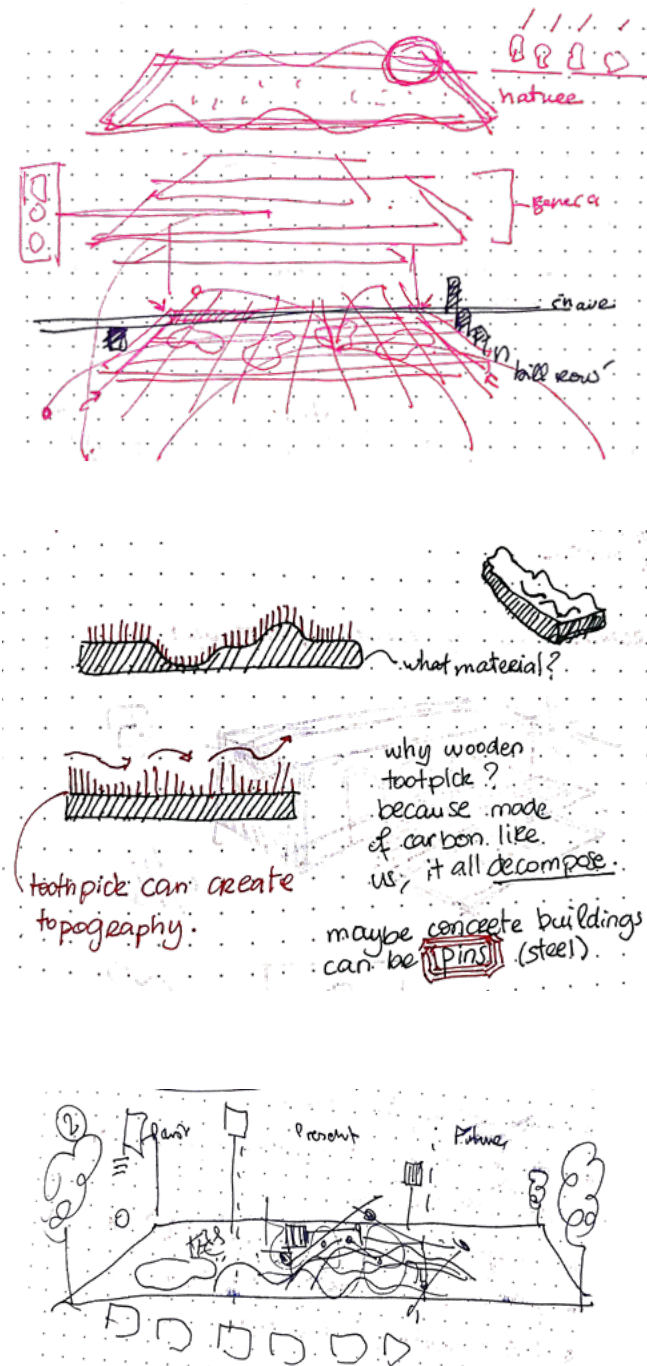 nature
what material?
why wooden
tootpick?
because made
of carbon like
us, it all decompose.
toothpick can create
topography.
maybe concrete buildings
can be pins (steel).
2
Present
Future